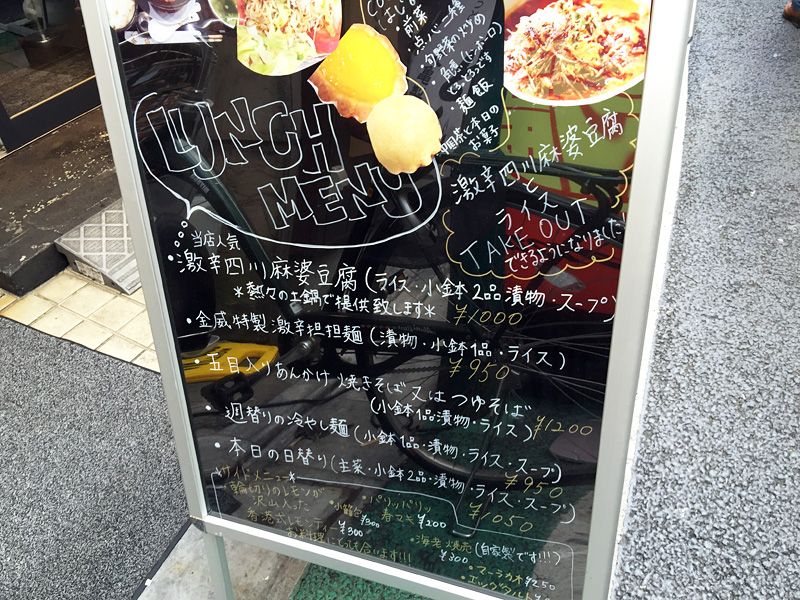 前菜
点心二種
麺飯
中国茶と本日の
お菓子
LUNCH
MENU
激辛四川麻婆豆腐
と
ライス
TAKE OUT
できるようになりました!
当店人気
・激辛四川麻婆豆腐(ライス・小鉢2品漬物・スープ)
*熱々の土鍋で提供致します* ¥1000
・金威特製激辛担担麺(漬物・小鉢1品・ライス)
¥950
・五目入りあんかけ焼きそば又はつゆそば
(小鉢1品漬物・ライス) ¥1200
・週替りの冷やし麺(小鉢1品・漬物・スープ)
¥950
・本日の日替り(主菜・小鉢2品・漬物・ライス・スープ)
¥1050
*サイドメニュー*
輪切りのレモンが
沢山入った
香港式レモンティー
¥300
お料理にとても合います!!!
・小籠包
¥300
・パリッパリッ
春マキ ¥200
・海老焼売(自家製です!!!)
¥300
・マーラカオ ¥250
・エッグタルト